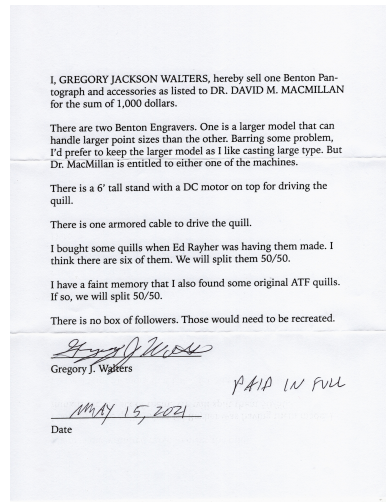 I, GREGORY JACKSON WALTERS, hereby sell one Benton Pan-
tograph and accessories as listed to DR. DAVID M. MACMILLAN
for the sum of 1,000 dollars.
There are two Benton Engravers. One is a larger model that can
handle larger point sizes than the other. Barring some problem,
I'd prefer to keep the larger model as I like casting large type. But
Dr. MacMillan is entitled to either one of the machines.
There is a 6' tall stand with a DC motor on top for driving the
quill.
There is one armored cable to drive the quill.
I bought some quills when Ed Rayher was having them made. I
think there are six of them. We will split them 50/50.
I have a faint memory that I also found some original ATF quills.
If so, we will split 50/50.
There is no box of followers. Those would need to be recreated.
Gregory J. Walters
PAID IN FULL
MAY 15, 2021
Date